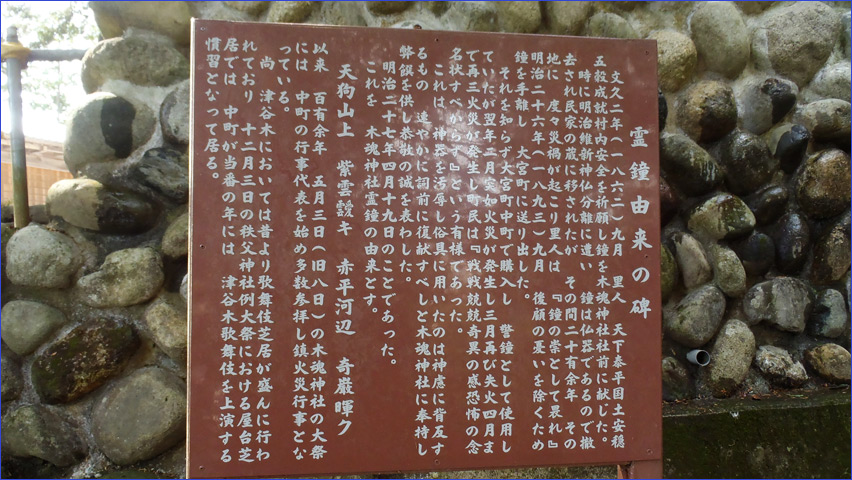 霊鐘由来の碑
文久二年(一八六二)九月 里人 天下泰平国土安穏
五穀成就村内安全を祈願し鐘を木魂神社社前に献じた。
時に明治維新神仏分離に遭い 鐘は仏器であるので撤
去され民家の蔵に移されたが その間二十有余年 その
地に 度々災禍が起こり里人は 『鐘の祟として畏れ』
明治二十六年(一八九三)九月 後顧の憂いを除くため
鐘を手離し 大宮町に送り出した。
それを知らず大宮町中町で購入し 警鐘として使用し
ていたが翌年二月突如火災が発生し三月再び失火四月ま
で再三火災が発生し町民は『戦戦兢兢奇異の感恐怖の念
名状すべからず』という有様であった。
これは 神器を汚辱し俗具に用いたのは神慮に背反す
るもの 速やかに祠前に復献すべしと木魂神社に奉持し
弊饌を供し恭敬の誠を表わした。
明治二十七年四月十九日のことであった。
これを 木魂神社霊鐘の由来とす。
天狗山上 紫雲靉キ 赤平河辺 奇巌暉ク
以来 百有余年 五月三日(旧八日)の木魂神社の大祭
には 中町の行事代表を始め多数参拝し鎮火災行事とな
っている。
尚 津谷木においては昔より歌舞伎芝居が盛んに行わ
れており 十二月三日の秩父神社例大祭における屋台芝
居では 中町が当番の年には 津谷木歌舞伎を上演する
慣習となって居る。